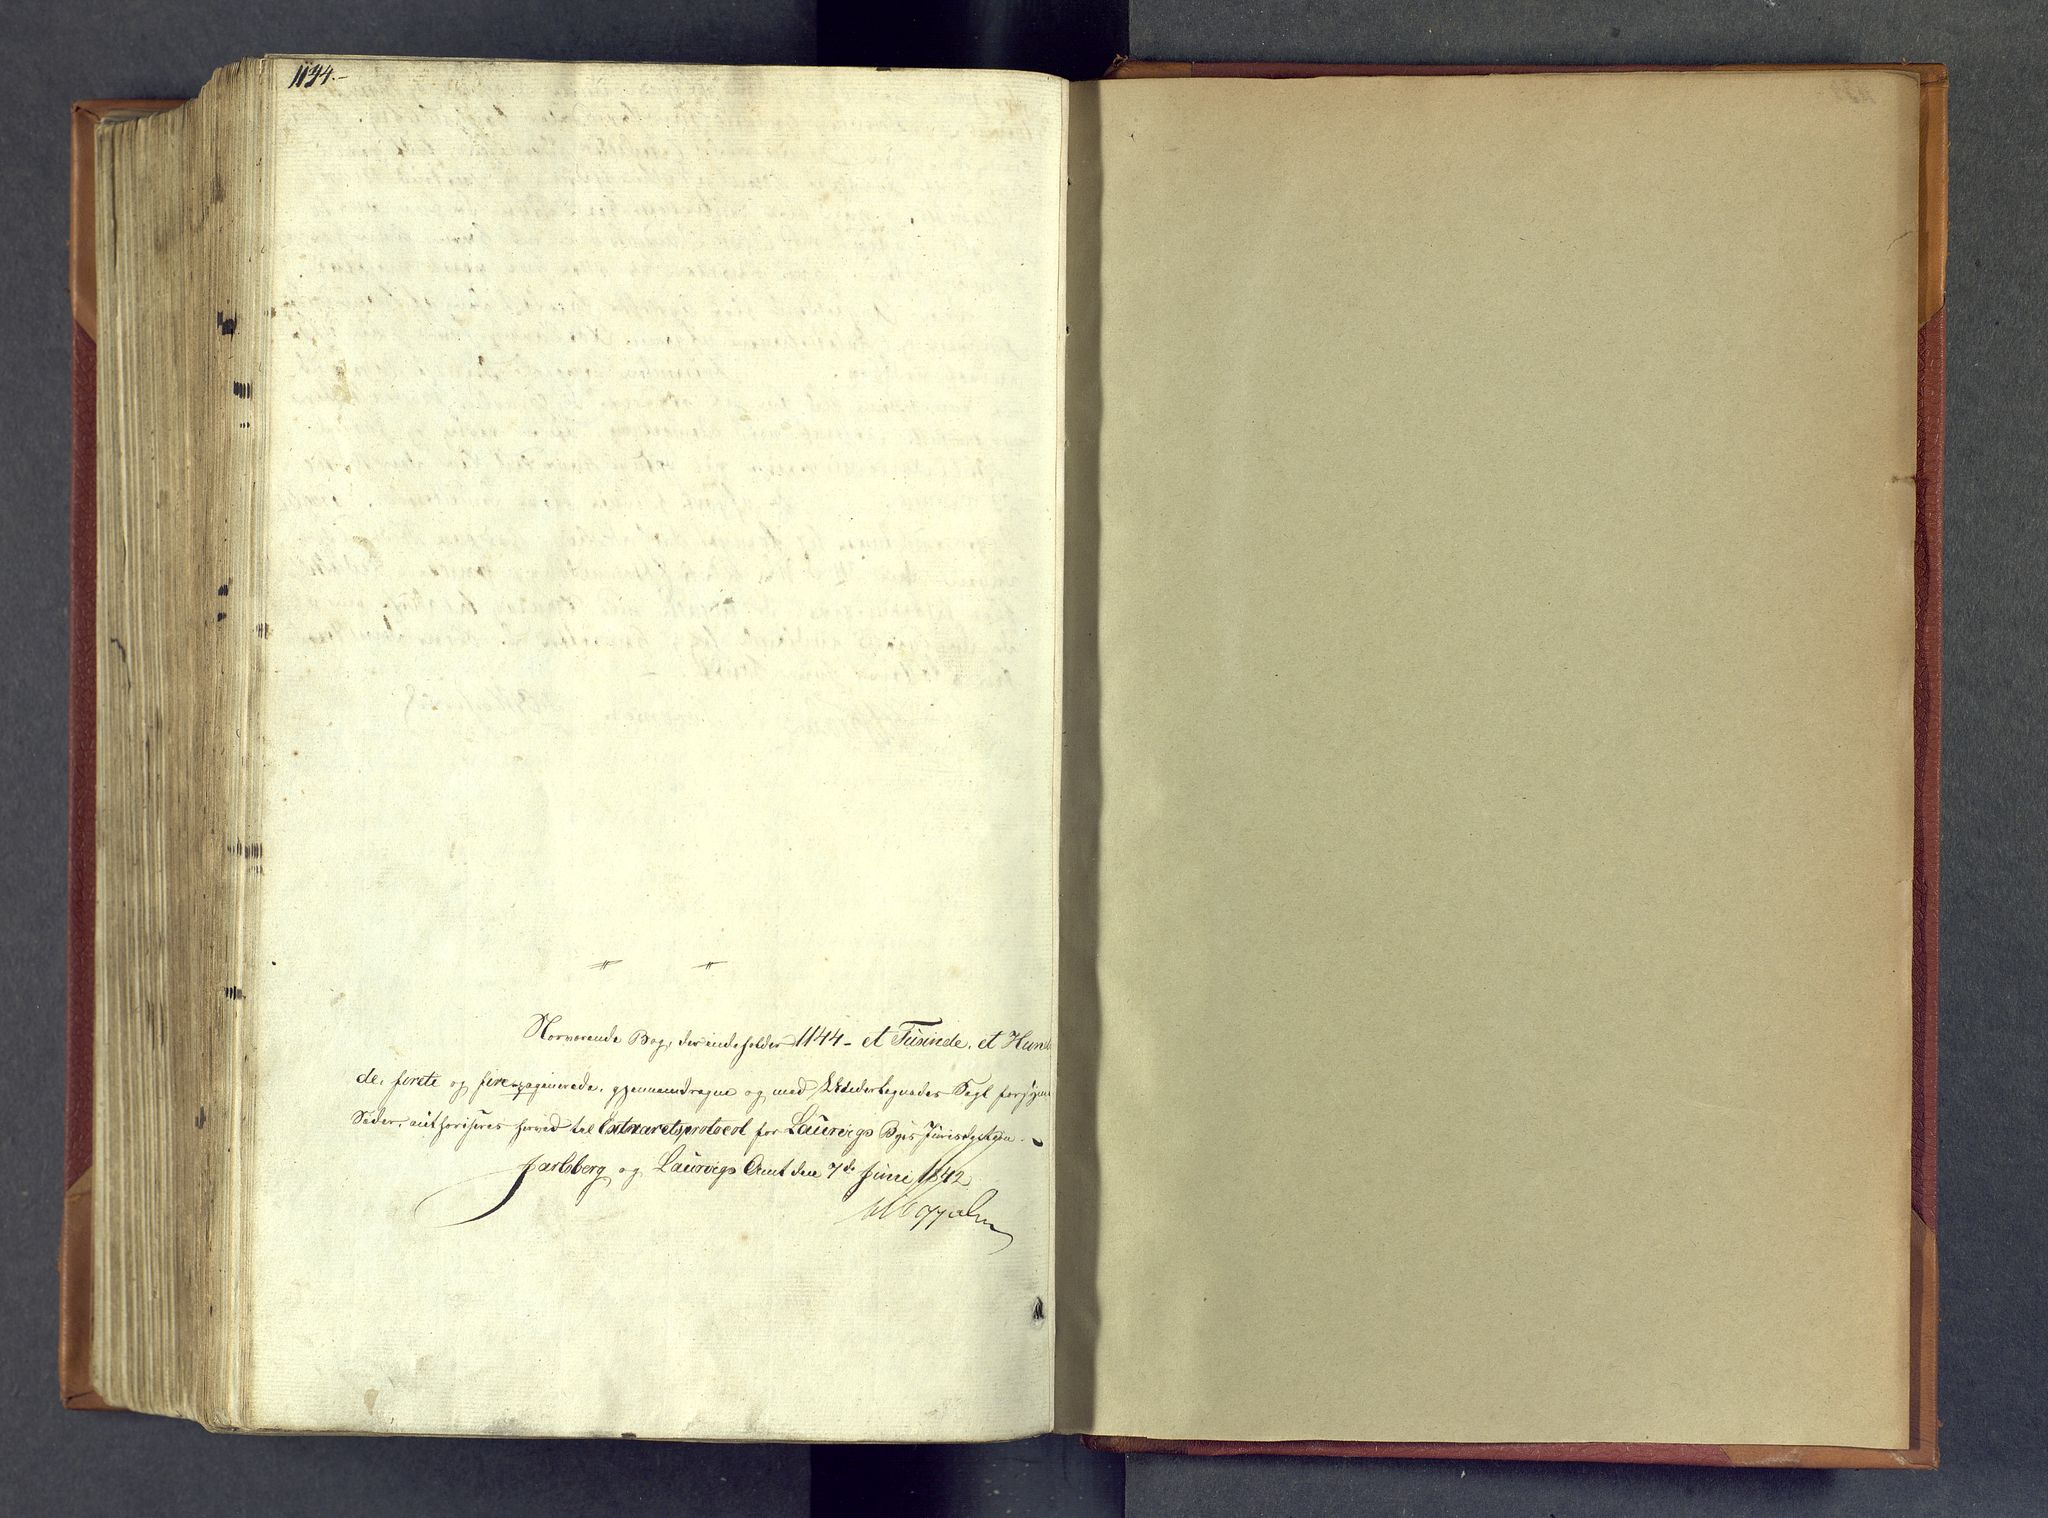 1144.-
Nærværende Bog, der indeholder 1144 - et Tusinde, et Hund
de, førete og fire paginerede, gjennemdragne og med Embedets Segl forsynede
Sider, authoriseres herved til Extraretsprotocol for Laurvigs Byes Jurisdiction. -
Jarlsberg og Laurvigs Amt den 7de Juni 1842